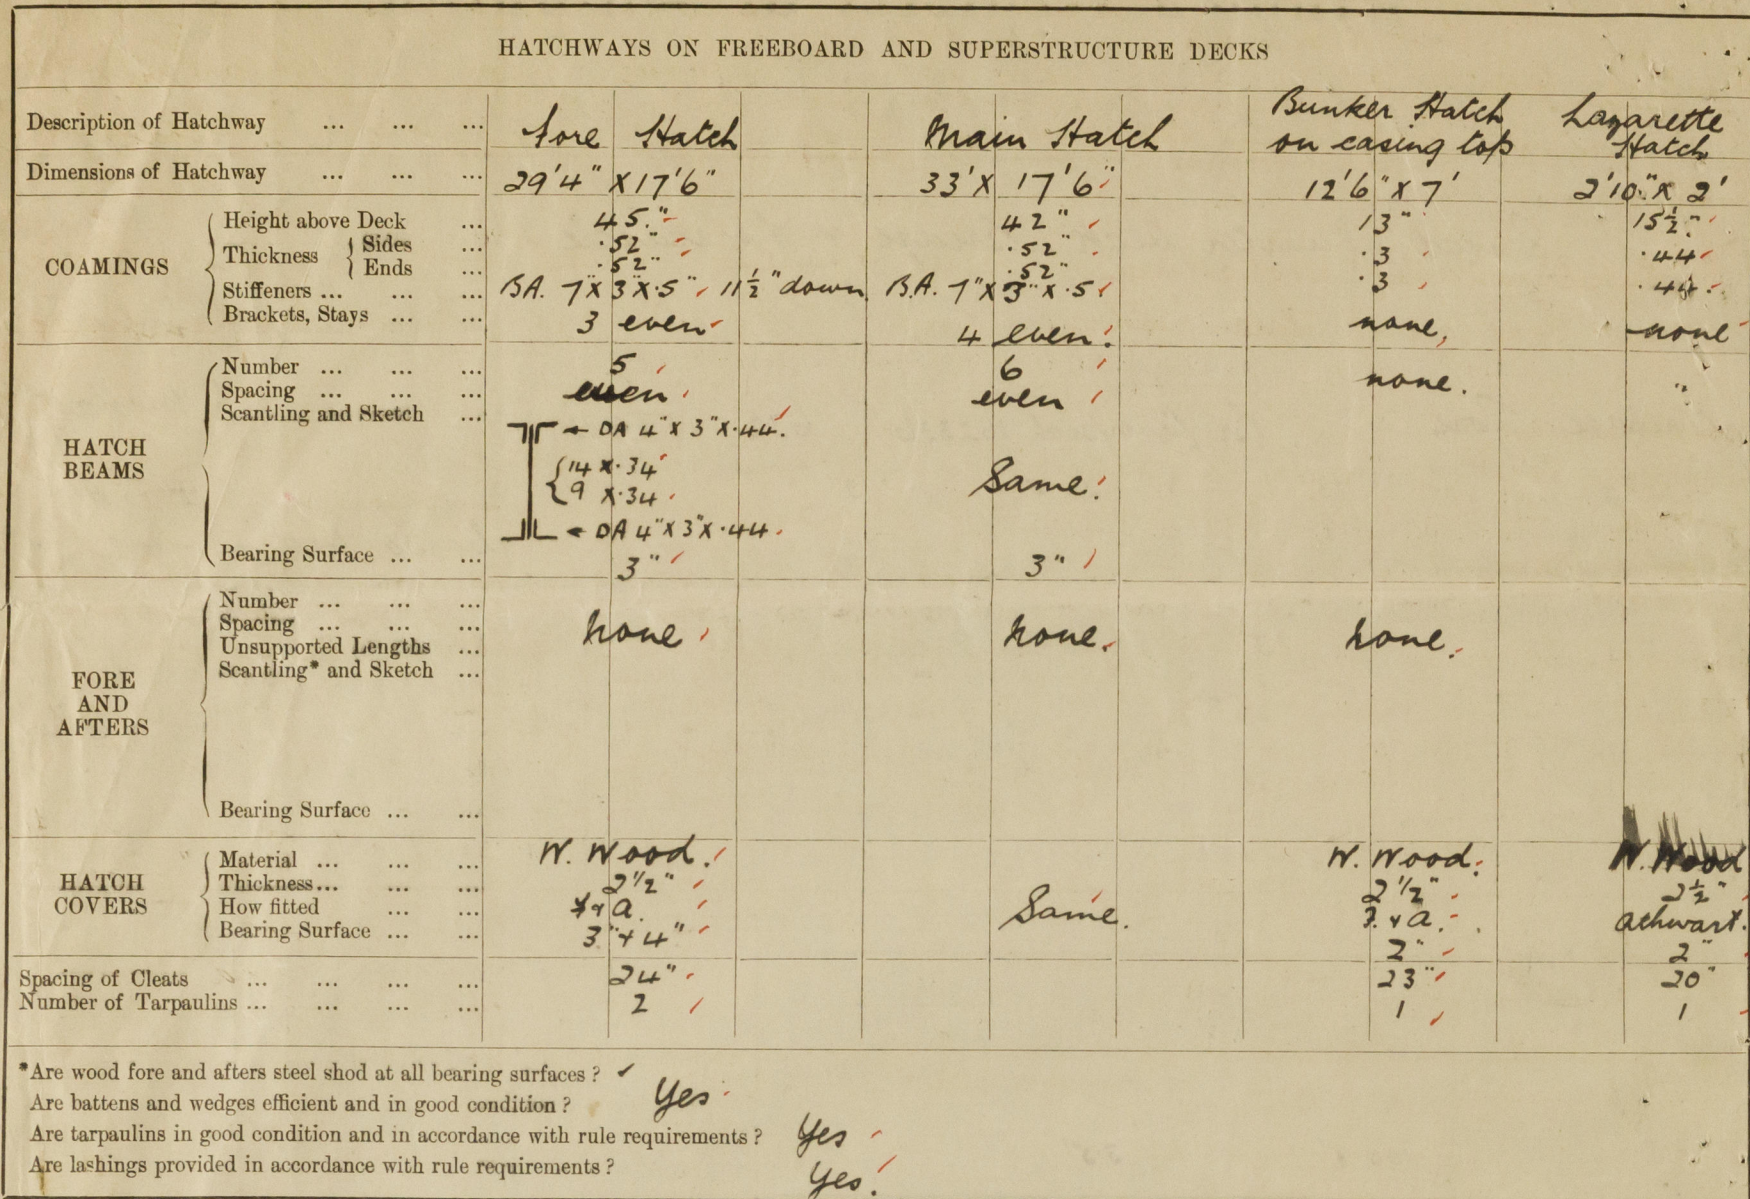 HATCHWAYS ON FREEBOARD AND SUPERSTRUCTURE DECKS
Description of Hatchway ... ... ... Fore Hatch Main Hatch Bunker Hatch on casing top Lazarette Hatch
Dimensions of Hatchway ... ... ... 29'4" X 17'6" 33' X 17'6" 12'6" X 7' 2'10" X 2'
COAMINGS
Height above Deck ... 45" 42" 13" 15½"
Thickness { Sides ... .52" .52" .3 .44
Ends ... .52" .52" .3 .44
Stiffeners ... ... ... BA. 7" X 3" X .5" 11½" down B.A. 7" X 3" X .5
Brackets, Stays ... ... 3 even 4 even. none, none
HATCH BEAMS
Number ... ... ... 5 6 none. "
Spacing ... ... ... even even
Scantling and Sketch ...
DA 4" X 3" X .44.
14 X .34
9 X .34
Same.
DA 4" X 3" X .44.
Bearing Surface ... ... 3" 3"
FORE AND AFTERS
Number ... ... ...
Spacing ... ... ... none none. none.
Unsupported Lengths ...
Scantling* and Sketch ...
Bearing Surface ... ...
HATCH COVERS
Material ... ... ... W. Wood. W. Wood. W. Wood
Thickness... ... ... 2½" 2½" 2½"
How fitted ... ... F & A. Same. F. & A. athwart.
Bearing Surface ... ... 3" + 4" 2" 2"
Spacing of Cleats ... ... ... ... 24" 23" 20"
Number of Tarpaulins ... ... ... ... 2 1 1
*Are wood fore and afters steel shod at all bearing surfaces ?
Are battens and wedges efficient and in good condition ? Yes
Are tarpaulins in good condition and in accordance with rule requirements ? Yes
Are lashings provided in accordance with rule requirements ? Yes.